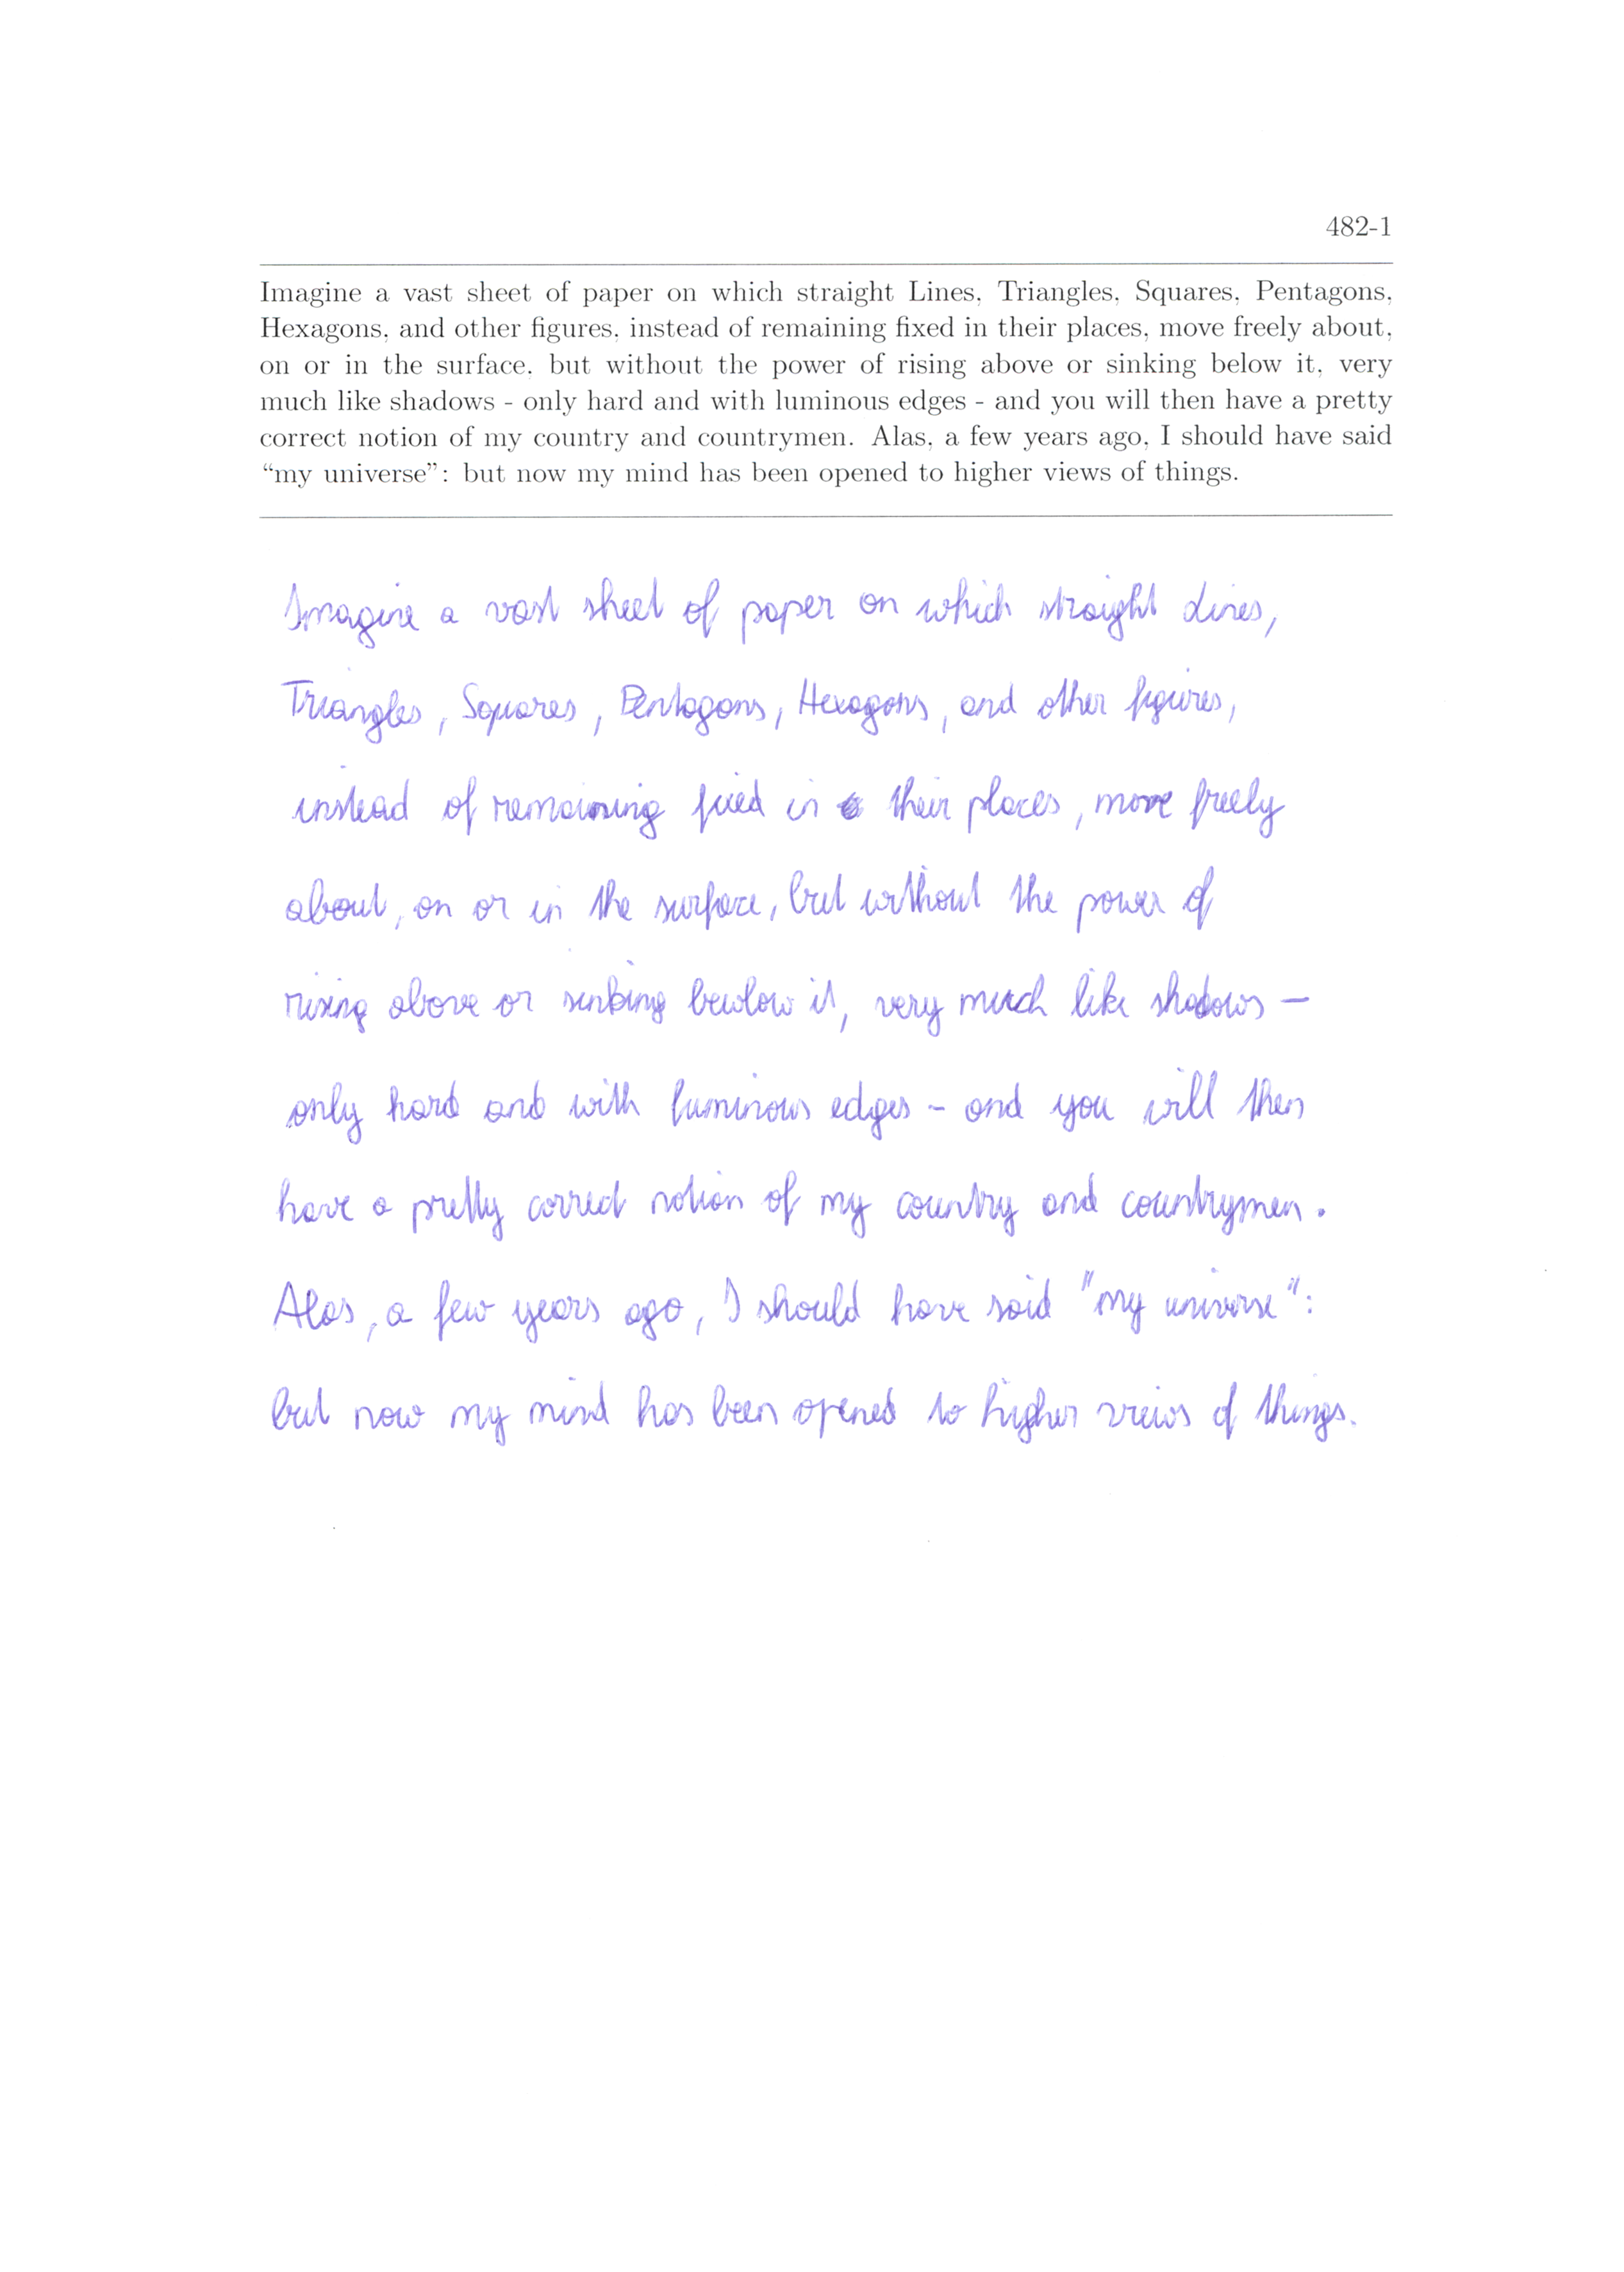 482-1
Imagine a vast sheet of paper on which straight Lines, Triangles, Squares, Pentagons,
Hexagons, and other figures, instead of remaining fixed in their places, move freely about,
on or in the surface, but without the power of rising above or sinking below it, very
much like shadows - only hard and with luminous edges - and you will then have a pretty
correct notion of my country and countrymen. Alas, a few years ago, I should have said
“my universe”: but now my mind has been opened to higher views of things.
Imagine a vast sheet of paper on which straight Lines,
Triangles, Squares, Pentagons, Hexagons, and other figures,
instead of remaining fixed in their places, move freely
about, on or in the surface, but without the power of
rising above or sinking bewlow it, very much like shadows —
only hard and with luminous edges - and you will then
have a pretty correct notion of my country and countrymen.
Alas, a few years ago, I should have said "my universe":
but now my mind has been opened to higher views of things.